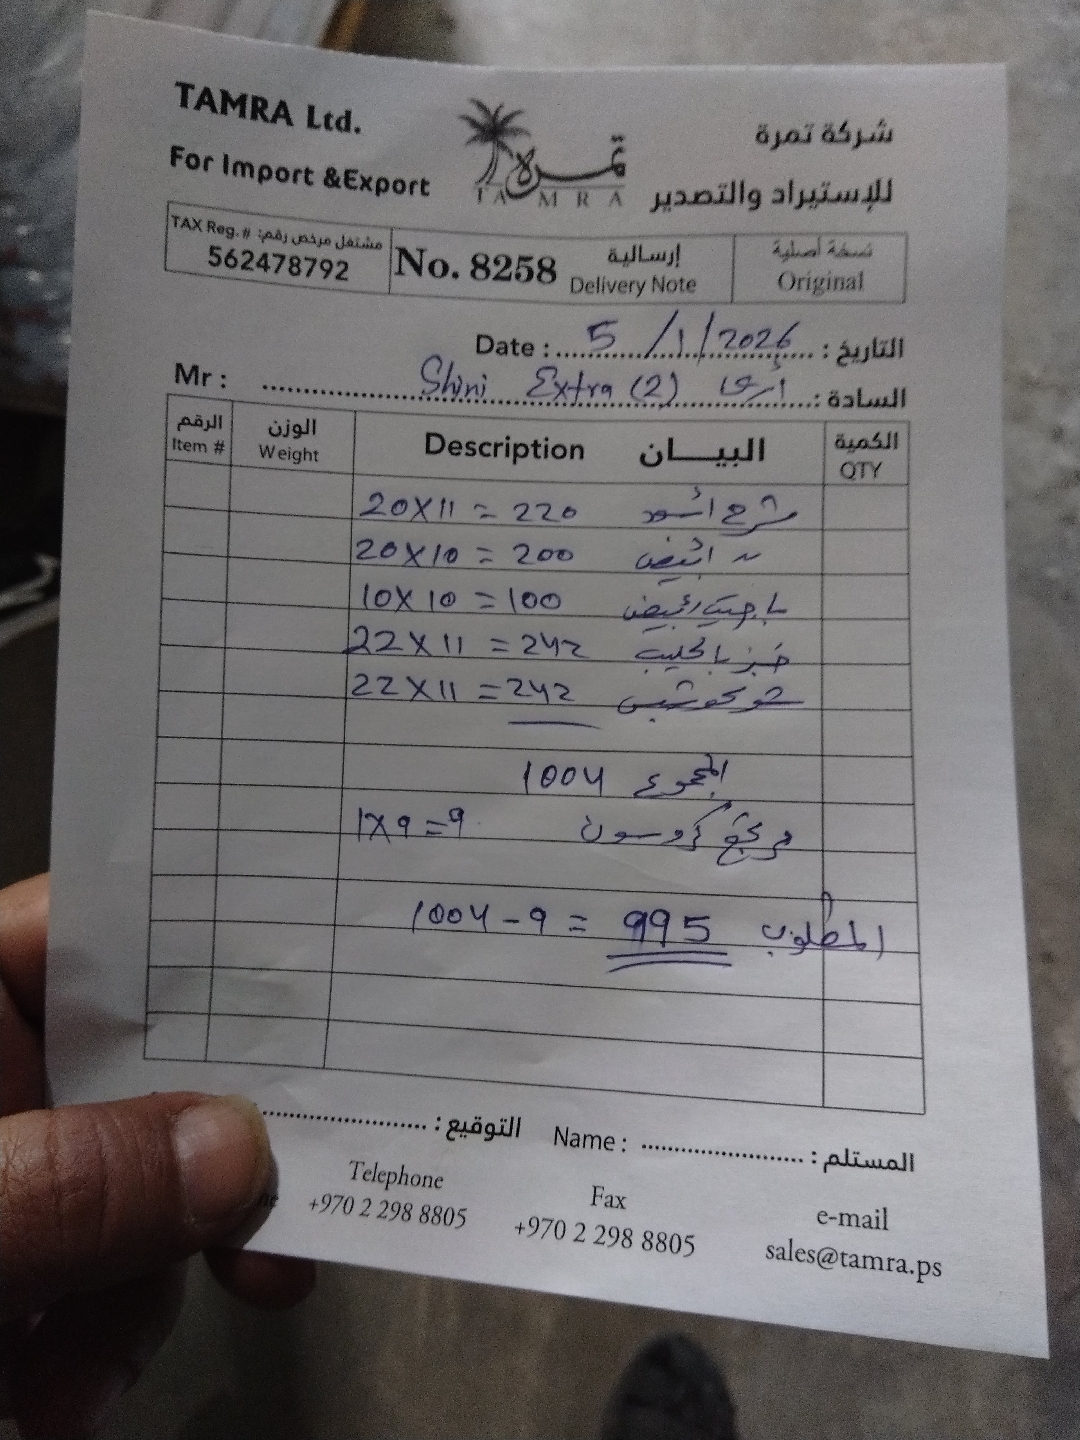 TAMRA Ltd.
For Import &Export
شركة تمرة
للإستيراد والتصدير
تمرة
TAMRA
TAX Reg. # مشتغل مرخص رقم:
562478792
No. 8258
إرسالية
Delivery Note
نسخة أصلية
Original
Date : 5/1/2026 التاريخ :
Mr : Shini Extra (2) السادة :
الرقم
Item #
الوزن
Weight
Description البيـــان
الكمية
QTY
20X11 = 220 اسود
20X10 = 200 ابيض
10X10 = 100
22X11 = 242 خبز بالحليب
22X11 = 242
1004 المجموع
1X9=9 مرجع
1004-9 = 995 المطلوب
التوقيع : Name : المستلم :
Telephone
+970 2 298 8805
Fax
+970 2 298 8805
e-mail
sales@tamra.ps